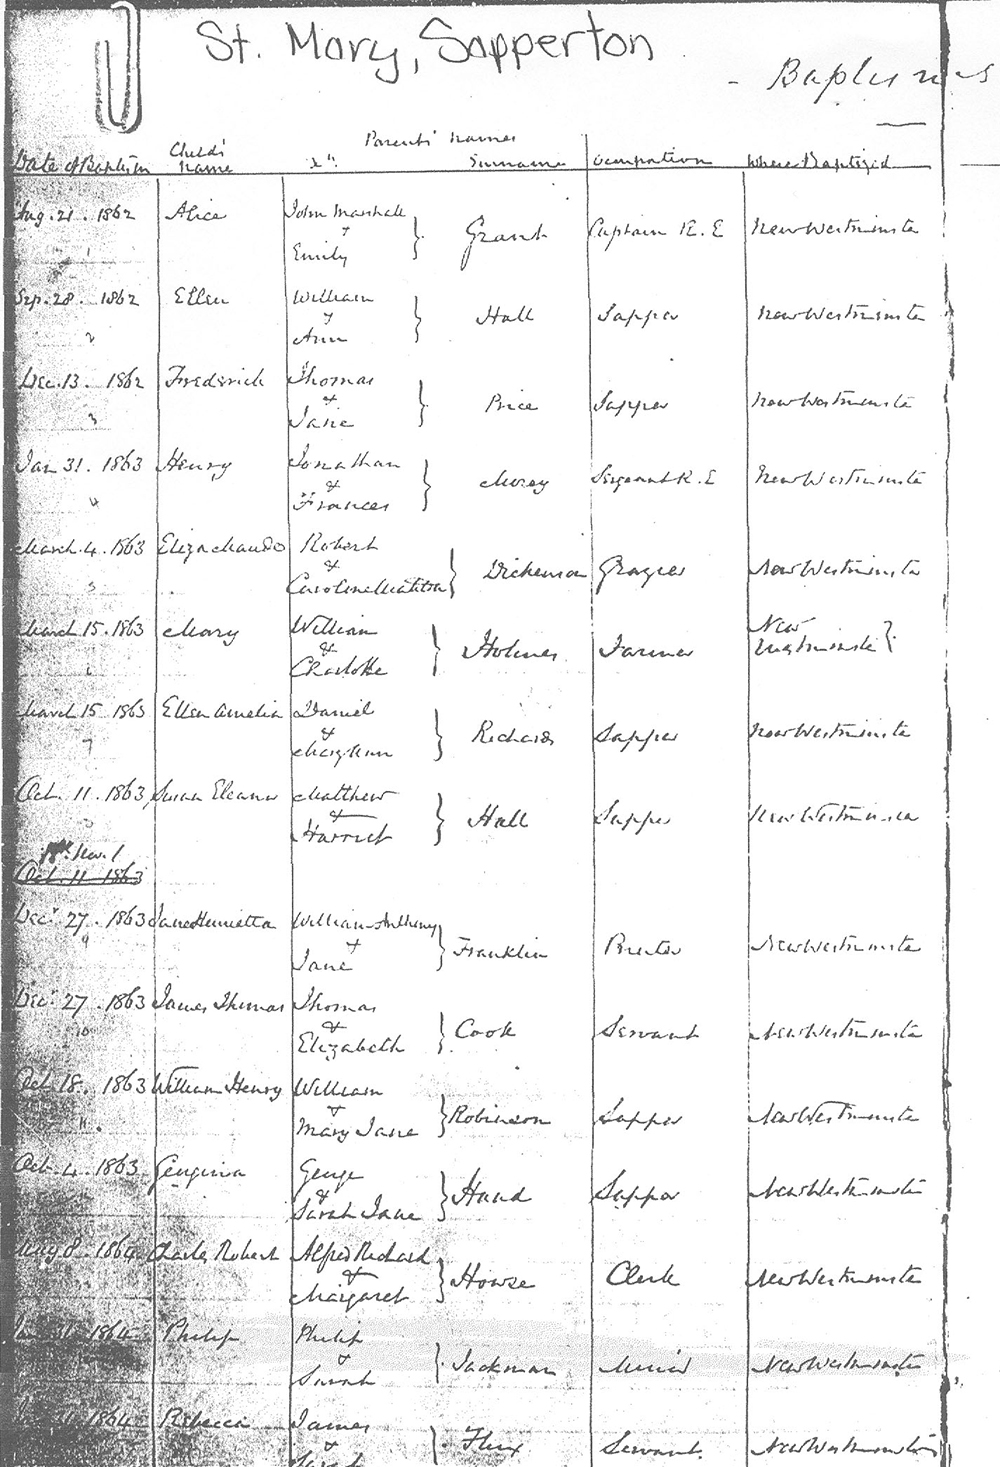 St. Mary, Sapperton
Baptisms
Parents' names
Date of Baptism Child's name Xn. Surname Occupation Where Baptized
Aug. 21. 1862 Alice John Marshall Grant Captain R. E New Westminster
1 & Emily
Sep. 28. 1862 Ellen William Hall Sapper New Westminster
2 & Ann
Dec. 13. 1862 Frederick Thomas Price Sapper New Westminster
3 & Jane
Jan 31. 1863 Henry Jonathan Morey Sergeant R. E New Westminster
4 & Frances
March 4. 1863 Eliza Maud Robert Dickenson Grazier New Westminster
5 & Caroline
March 15. 1863 Mary William Holmes Farmer New Westminster
6 & Charlotte
March 15 1863 Ellen Amelia Daniel Richards Sapper New Westminster
7 & Mary Ann
Oct. 11. 1863 Susan Eleanor Matthew Hall Sapper New Westminster
& Harriet
Nov. 1
Oct. 11 1863
Decr 27. 1863 Jane Henrietta William Anthony Franklin New Westminster
9 & Jane
Decr 27. 1863 James Thomas Thomas Cook Servant New Westminster
10 & Elizabeth
Oct. 18. 1863 William Henry William Robinson Sapper New Westminster
11. & Mary Jane
Oct. 4. 1863 Georgina George Hand Sapper New Westminster
& Sarah Jane
May 8. 1864 Charles Robert Alfred Richard Howse Clerk New Westminster
& Margaret
1864 Philip Philip Jackman Miner New Westminster
& Sarah
1864 Rebecca James Flux Servant New Westminster
& Sarah